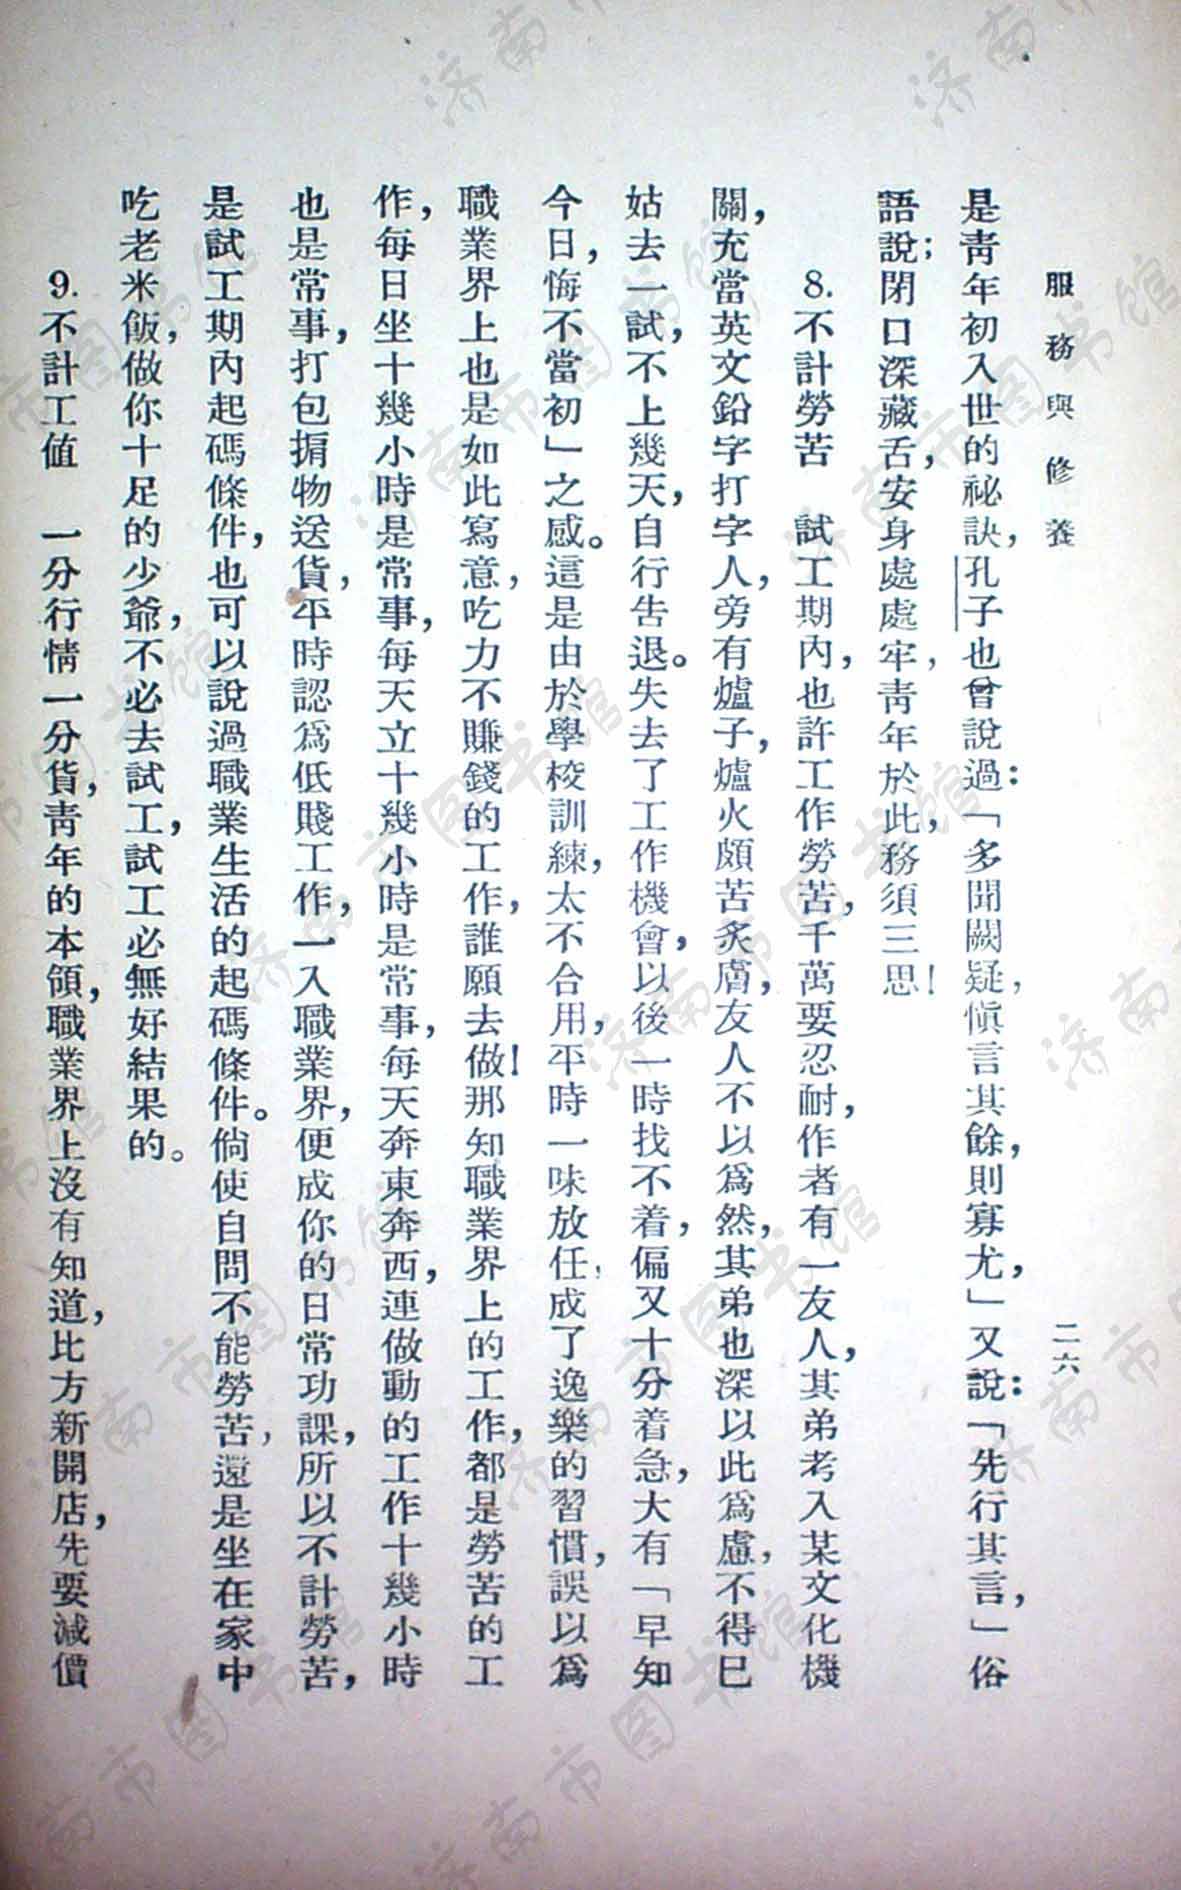 服務與修養
二六
是靑年初入世的祕訣，孔子也曾說過：「多聞闕疑，愼言其餘，則寡尤，」又說：「先行其言，」俗
語說；閉口深藏舌，安身處處牢，靑年於此，務須三思！
8. 不計勞苦　試工期內，也許工作勞苦，千萬要忍耐，作者有一友人，其弟考入某文化機
關，充當英文鉛字打字人，旁有爐子，爐火頗苦炙膚，友人不以爲然，其弟也深以此爲慮，不得已
姑去一試，不上幾天，自行吿退。失去了工作機會，以後一時找不着，偏又十分着急，大有「早知
今日，悔不當初」之感。這是由於學校訓練，太不合用，平時一味放任，成了逸樂的習慣，誤以爲
職業界上也是如此寫意，吃力不賺錢的工作，誰願去做！那知職業界上的工作，都是勞苦的工
作，每日坐十幾小時是常事，每天立十幾小時是常事，每天奔東奔西，連做動的工作十幾小時
也是常事，打包捐物送貨，平時認爲低賤工作，一入職業界，便成你的日常功課，所以不計勞苦，
是試工期內起碼條件，也可以說過職業生活的起碼條件。倘使自問不能勞苦，還是坐在家中
吃老米飯，做你十足的少爺，不必去試工，試工必無好結果的。
9. 不計工值　一分行情一分貨，靑年的本領，職業界上沒有知道，比方新開店，先要減價
济南市图书馆